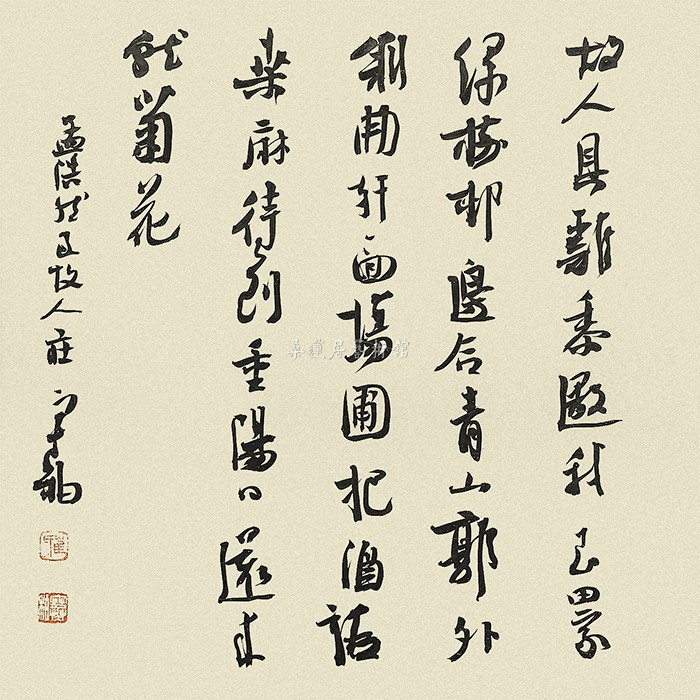 故人具雞黍邀我至田家
綠樹邨邊合青山郭外
斜開軒面場圃把酒話
桑麻待到重陽日還來
就菊花
孟浩然過故人莊
桑蓮居藝術館